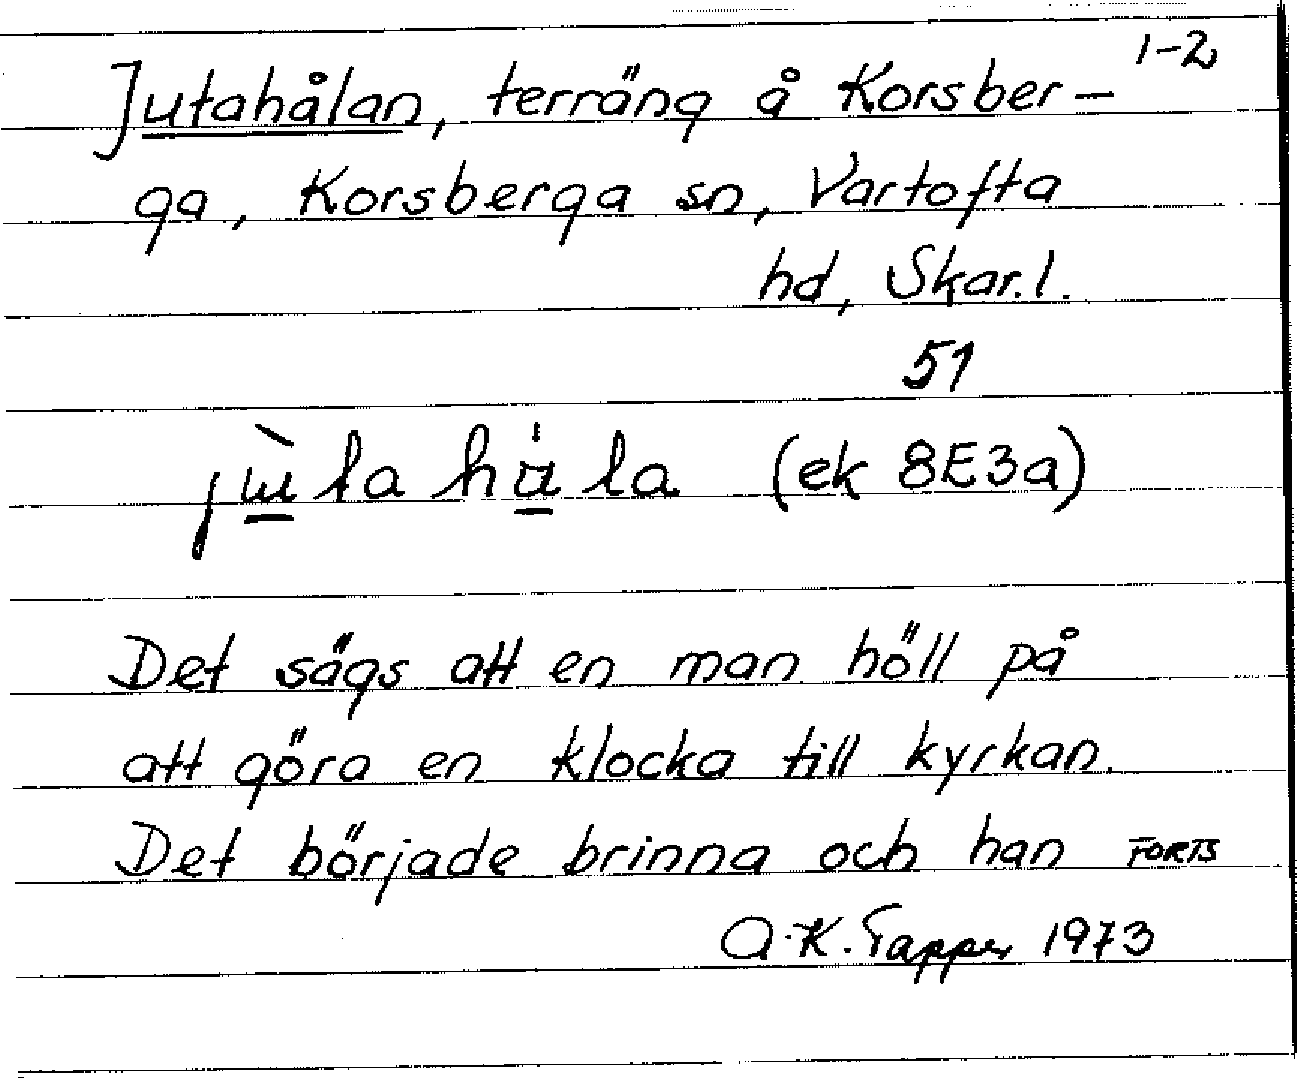 1-2
Jutahålan, terräng å Korsber-
ga, Korsberga sn, Vartofta
hd, Skar. l.
51
(ek 8E3a)
Det sägs att en man höll på
att göra en klocka till kyrkan.
Det började brinna och han FORTS
A-K. Tapper 1973